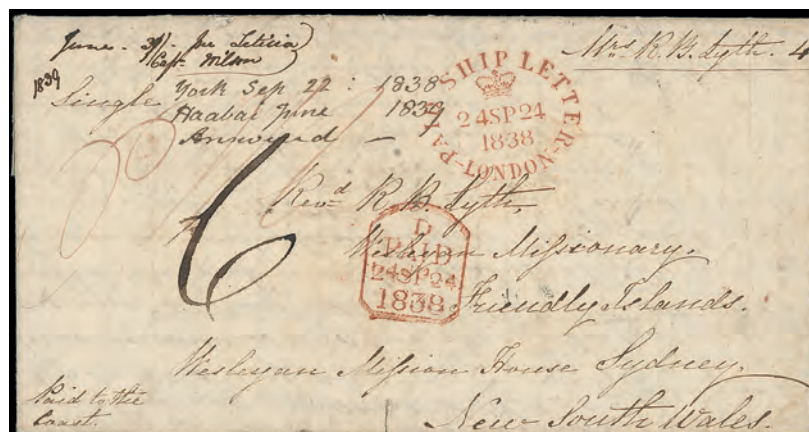 June. 3/. per Letitia
Capt. Wilson
Mrs. R. B. Lyth. 4
1839
Single York Sep 22: 1838
Haabai June 1839
Answered —
PAID SHIP LETTER
24SP24
1838
LONDON
6
Revd R. B. Lyth,
Wesleyan Missionary.
Friendly Islands.
D
PAID
24SP24
1838
Wesleyan Mission House Sydney.
New South Wales.
Paid to the
Coast.